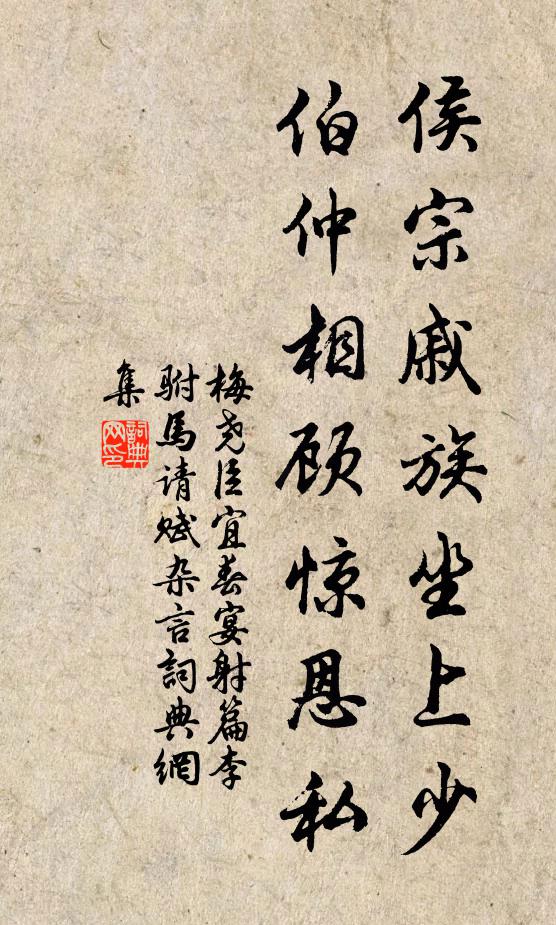 侯宗戚族坐上少
伯仲相顾惊恩私
梅尧臣宜春宴射篇李
驸马请赋杂言詞典網
集
詞典
网印